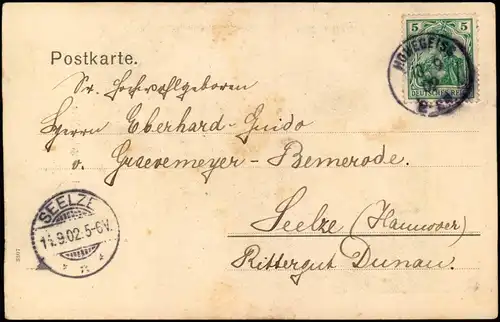 Postkarte.
5 5
DEUTSCHES REICH
HOHEGEISS
9
Sr. Hochwohlgeboren
Herrn Eberhard-Guido
v. Graevemeyer-Bemerode.
Seelze (Hannover)
Rittergut Dunau.
SEELZE
11.9.02.5-6V.